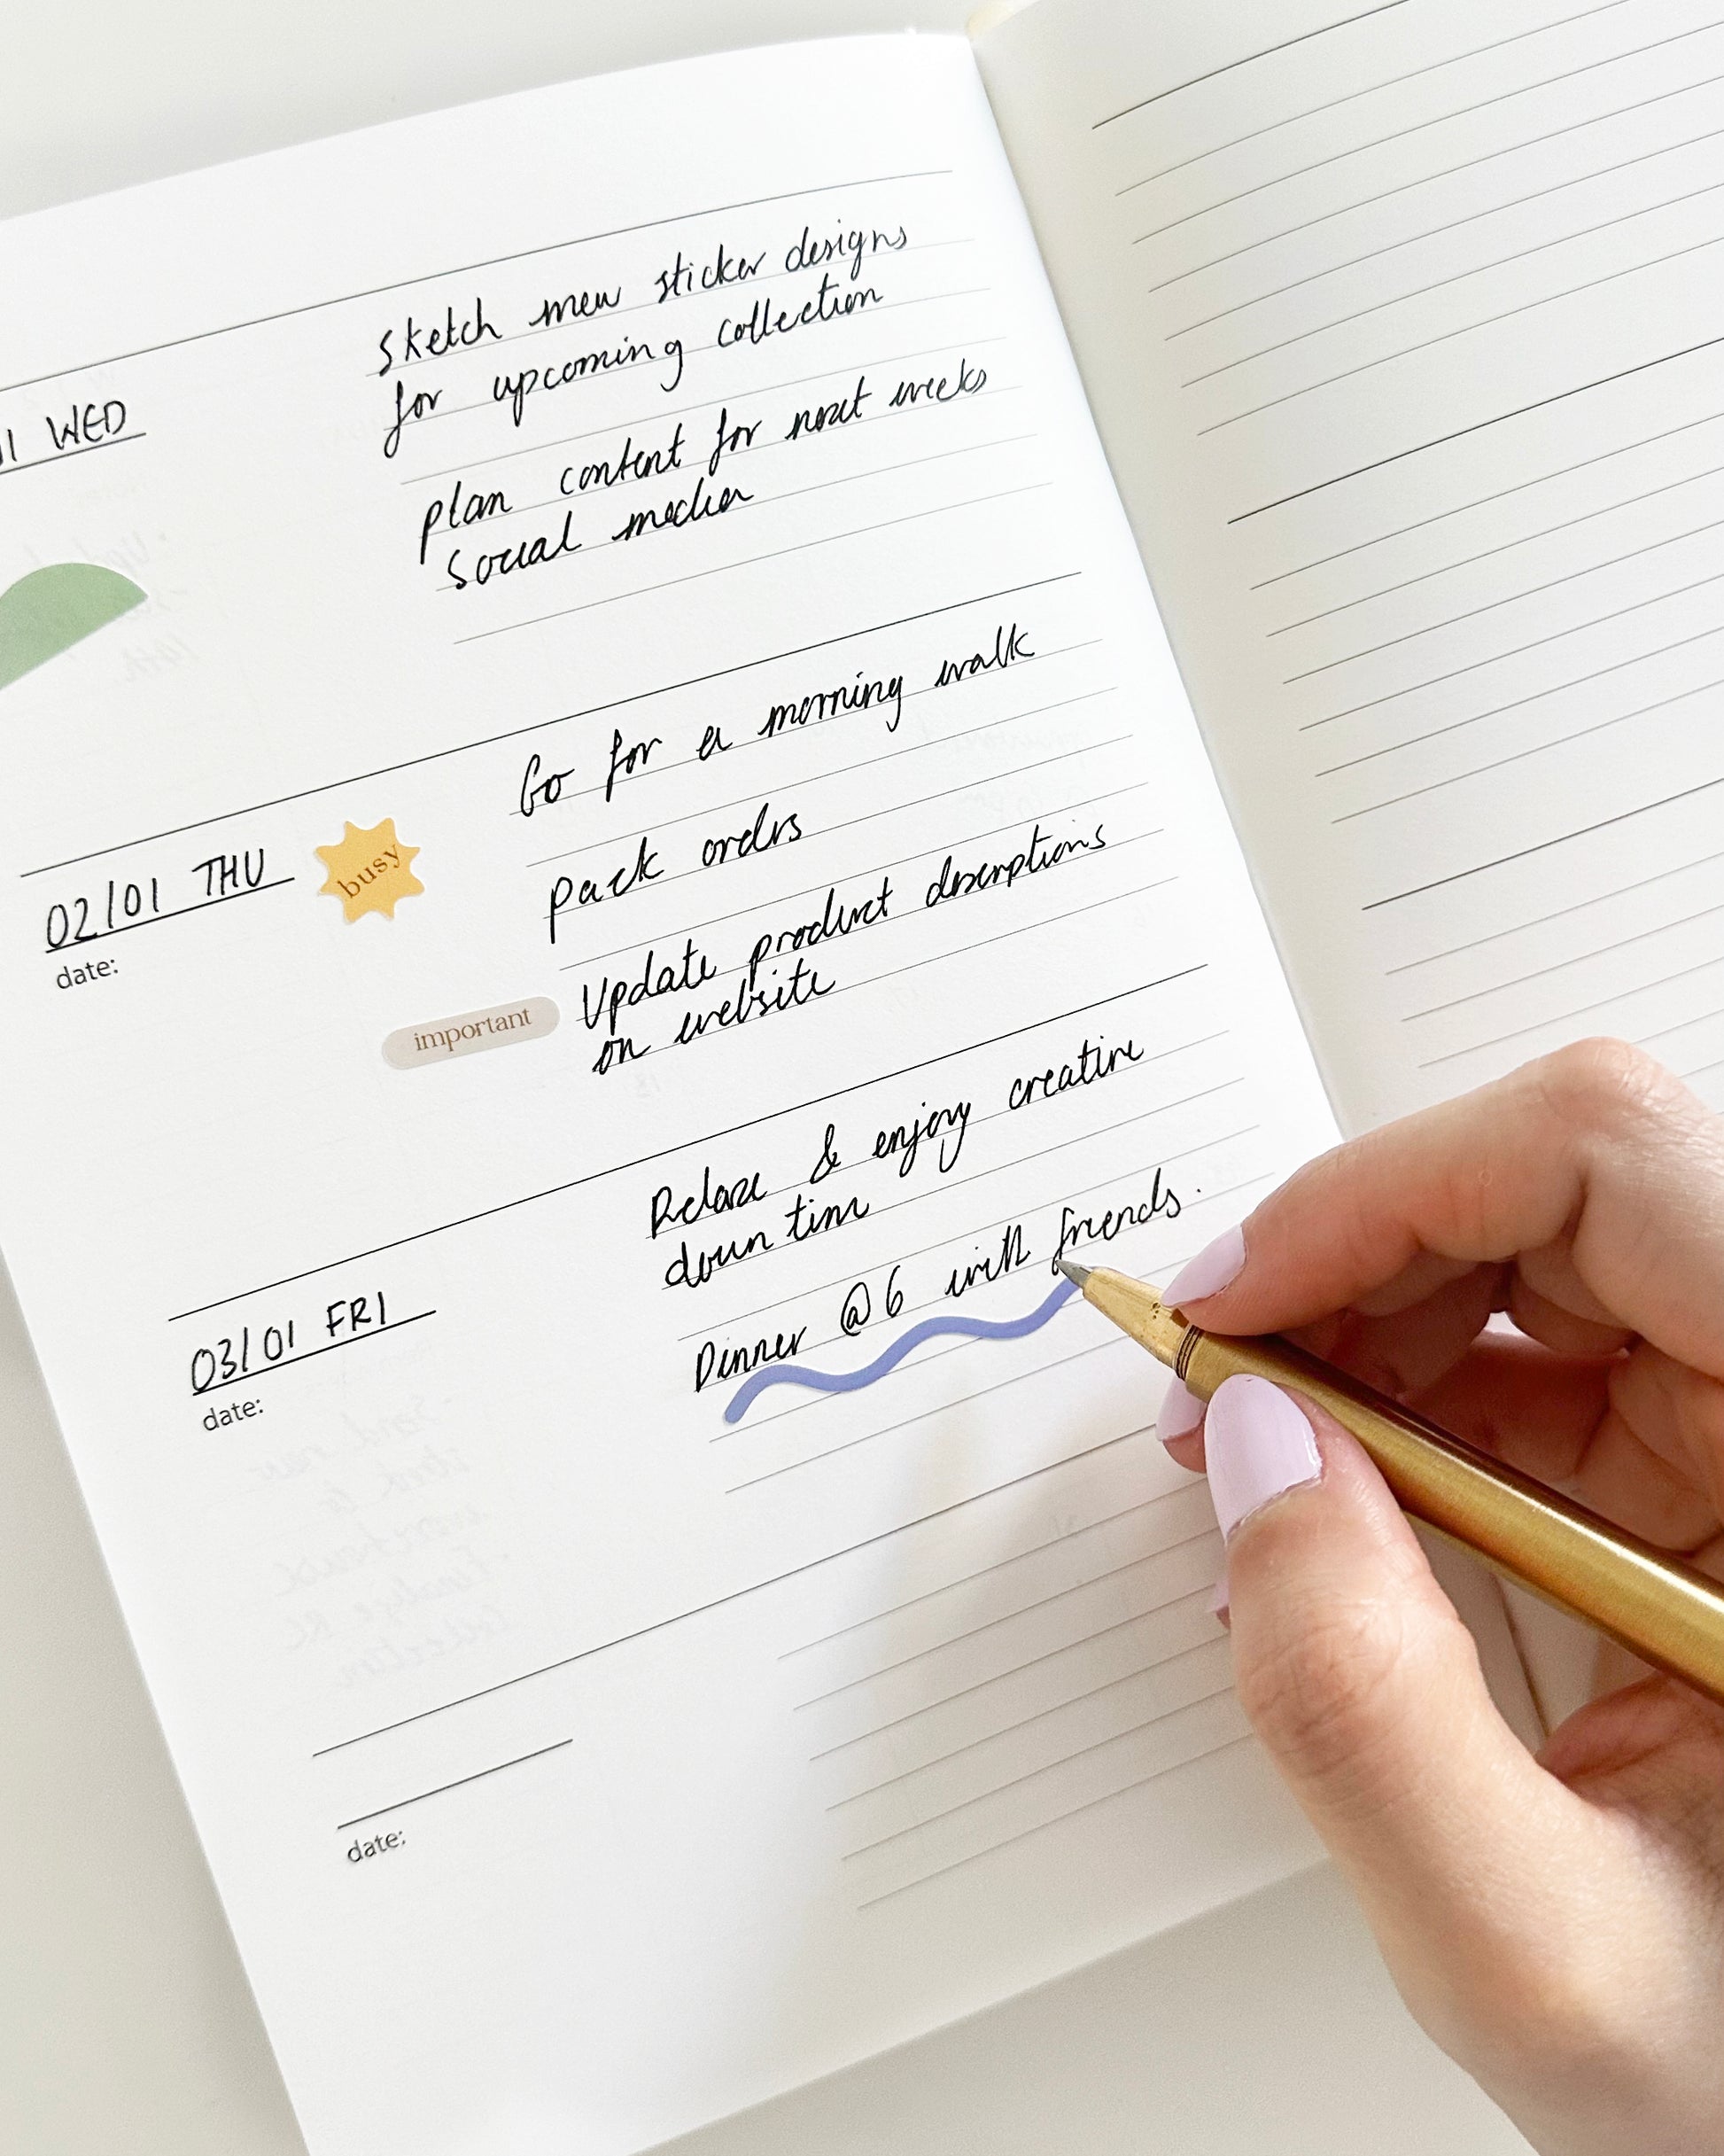 Sketch new sticker designs
for upcoming collection
plan content for next weeks
social media
01 WED
Go for a morning walk
02/01 THU
busy
date:
pack orders
important
Update product descriptions
on website
Relax & enjoy creative
down time
03/01 FRI
date:
Dinner @6 with friends.
date: